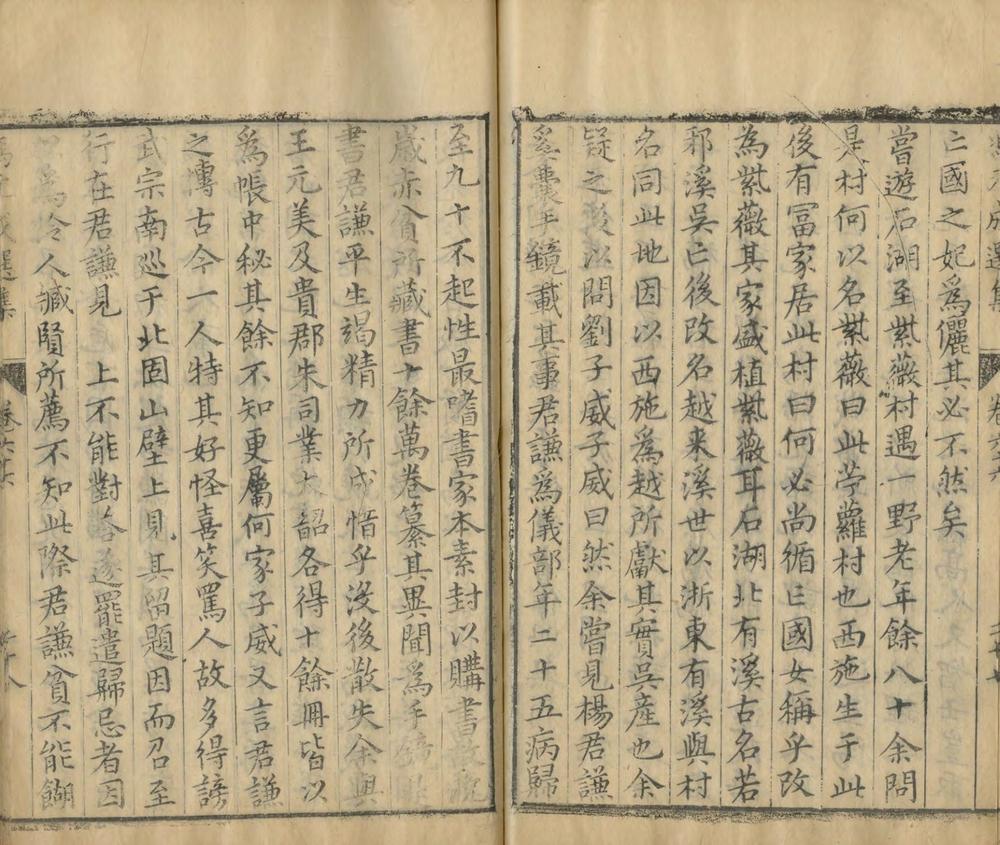 亡國之妃爲儷其必不然矣
嘗遊石湖至紫薇村遇一野老年餘八十余問
是村何以名紫薇曰此苧蘿村也西施生于此
後有冨家居此村曰何必尚循亡國女稱乎改
為紫薇其家盛植紫薇耳石湖北有溪古名若
邪溪吳亡後改名越来溪世以浙東有溪與村
名同此地因以西施爲越所獻其實吳産也余
疑之以問劉子威子威曰然余嘗見楊君謙
奚囊手鏡載其事君謙爲儀部年二十五病歸
至九十不起性最嗜書家本素封以購書故
歲赤貧所藏書十餘萬卷纂其異聞爲手鏡
書君謙平生竭精力所成惜乎没後散失余與
王元美及貴郡朱司業大韶各得十餘冊皆以
爲帳中秘其餘不知更屬何家子威又言君謙
之慱古今一人特其好怪喜笑罵人故多得謗
武宗南巡于北固山壁上見其留題因而召至
行在君謙見 上不能對答遂罷遣歸忌者因
爲伶人臧賢所薦不知此際君謙貧不能餬
選集
卷